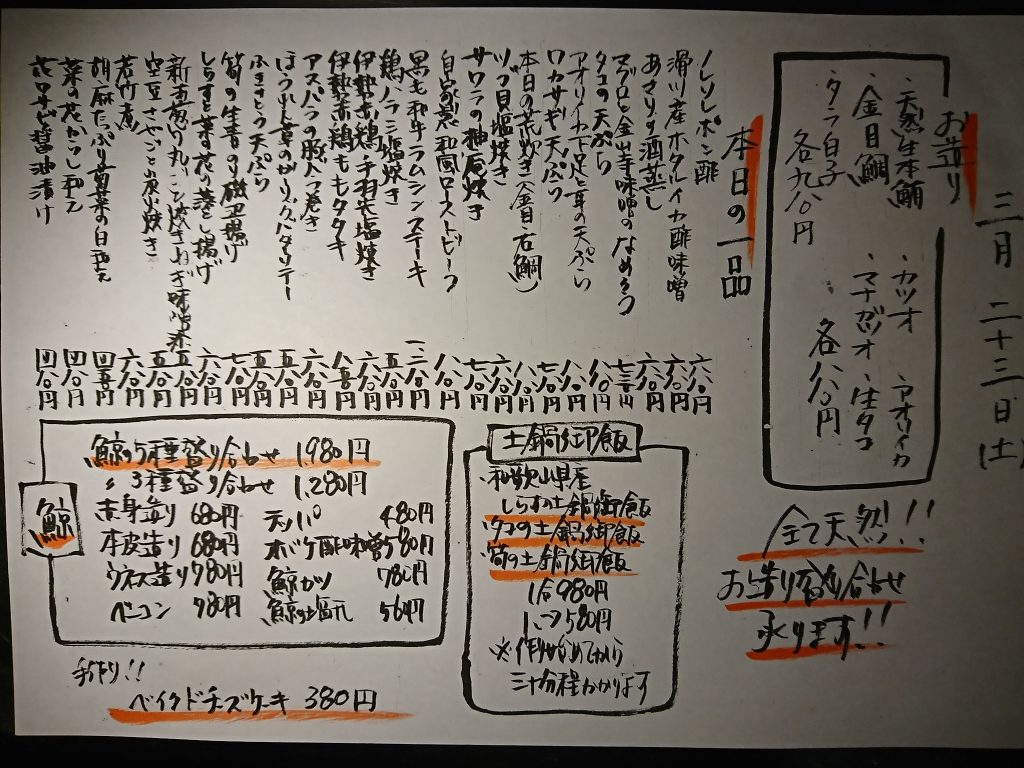 三月二十三日(土)
お造り
・天然生本鮪
・金目鯛
・タラ白子
各九八〇円
・カツオ ・アオリイカ
・マナガツオ ・生タコ
各八八〇円
全て天然!!
お造り盛り合わせ
承ります!!
本日の一品
ノレソレポン酢 六八〇円
滑川産ホタルイカ酢味噌 六八〇円
あさりの酒蒸し 六八〇円
マグロと金山寺味噌のなめろう
タコの天ぷら
アオリイカ下足と耳の天ぷら
ワカサギ天ぷら 七八〇円
本日の荒炊き(金目・石鯛)
ツブ貝塩焼き 六八〇円
サワラの柚庵焼き 七八〇円
自家製和風ローストビーフ
黒毛和牛ラムシンステーキ
鶏ハラミ塩焼き 六八〇円
伊勢赤鶏手羽先塩焼き
伊勢赤鶏ももタタキ
アスパラの豚バラ巻き 六八〇円
ほうれん草のガーリックバターソテー
ふきのとう天ぷら 五八〇円
筍の生青のり磯辺揚げ
しらすと菜の花の落とし揚げ 六八〇円
新玉葱の丸ごと焼きねぎ味噌添 五八〇円
空豆さやごと炭火焼き 五八〇円
若竹煮 六八〇円
胡麻たっぷり春菜の白和え
菜の花からし和え 四八〇円
花ワサビ醤油漬け 四八〇円
土鍋御飯
・和歌山県産
しらすの土鍋御飯
タコの土鍋御飯
筍の土鍋御飯
1合 980円
1.5合 1,580円
※作り始めてから
三十分程かかります
鯨
鯨の5種盛り合わせ 1,980円
〃3種盛り合わせ 1,280円
赤身造り 680円
本皮造り 680円
ウネス造り 780円
ベーコン 980円
オバケ酢味噌 580円
鯨カツ 780円
手作り!!
ベイクドチーズケーキ 380円